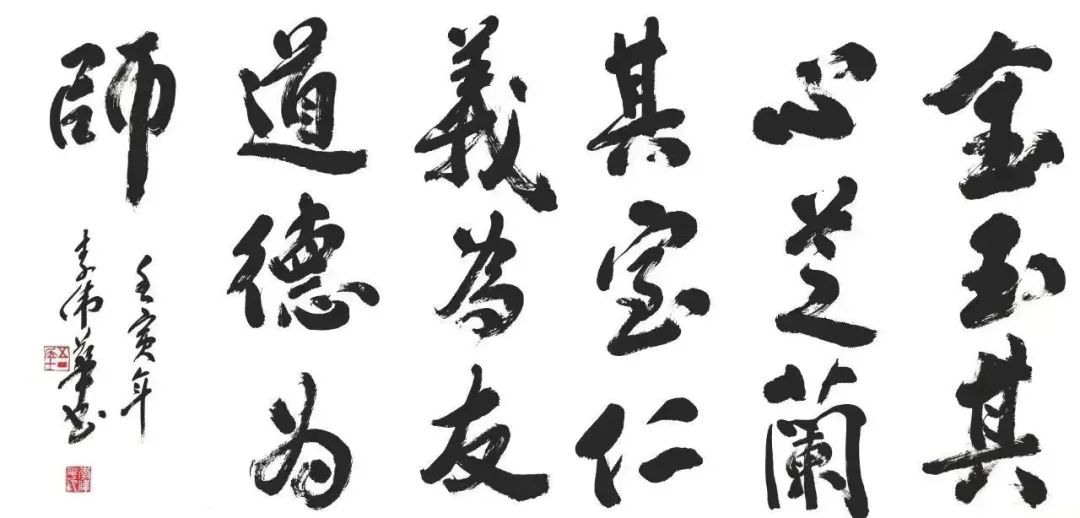 金玉其
心芝蘭
其室仁
義為友
道德为
師
壬寅年
李伟華书